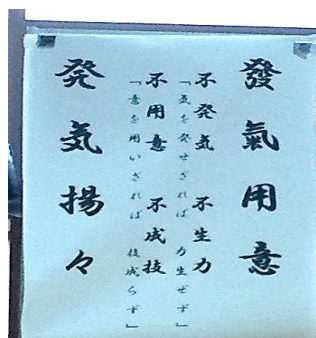 發氣用意
不発気 不生力
「気を発せざれば 力生ぜず」
不用意 不成技
「意を用いざれば 技成らず」
発気揚々